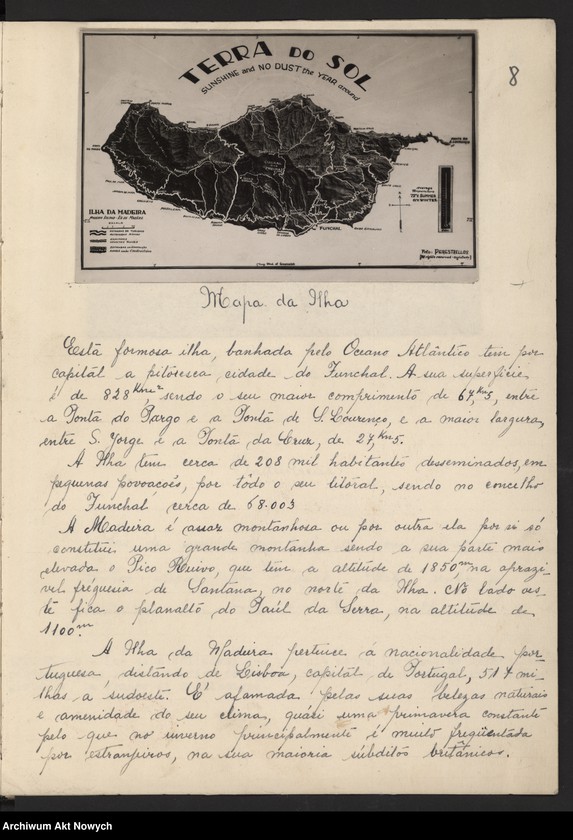 8
TERRA DO SOL
SUNSHINE and NO DUST the YEAR around
ILHA DA MADEIRA
FUNCHAL
Foto: PERESTRELLOS
Mapa da Ilha
Está formosa ilha, banhada pelo Oceano Atlântico tem por
capital a pitoresca cidade do Funchal. A sua superficie
é de 828 Km², sendo o seu maior comprimento de 67,Km5, entre
a Ponta do Pargo e a Ponta de S. Lourenço, e a maior largura,
entre S. Jorge e a Ponta da Cruz, de 27,Km5.
A Ilha tem cerca de 208 mil habitantes desseminados, em
pequenas povoacoés, por tôdo o seu litoral, sendo no concelho
do Funchal cerca de 68.003
A Madeira é assaz montanhosa ou por outra ela por si só
constitúi uma grande montanha sendo a sua parte mais
elevada o Pico Ruivo, que têm a altitude de 1850,m na aprazi-
vel fréguesia de Santana, no norte da Ilha. No lado oes-
te fica o planalto do Paúl da Serra, na altitude de
1100.m
A Ilha da Madeira pertence á nacionalidade por-
tuguesa, distando de Lisboa, capital de Portugal, 517 mi-
lhas a sudoeste. É afamada pelas suas belezas naturais
e amenidade do seu clima, quási uma primavera constante
pelo que no inverno principalmente é muito freqüentada
por estranjeiros, na sua maioria súbditos británicos.
Archiwum Akt Nowych